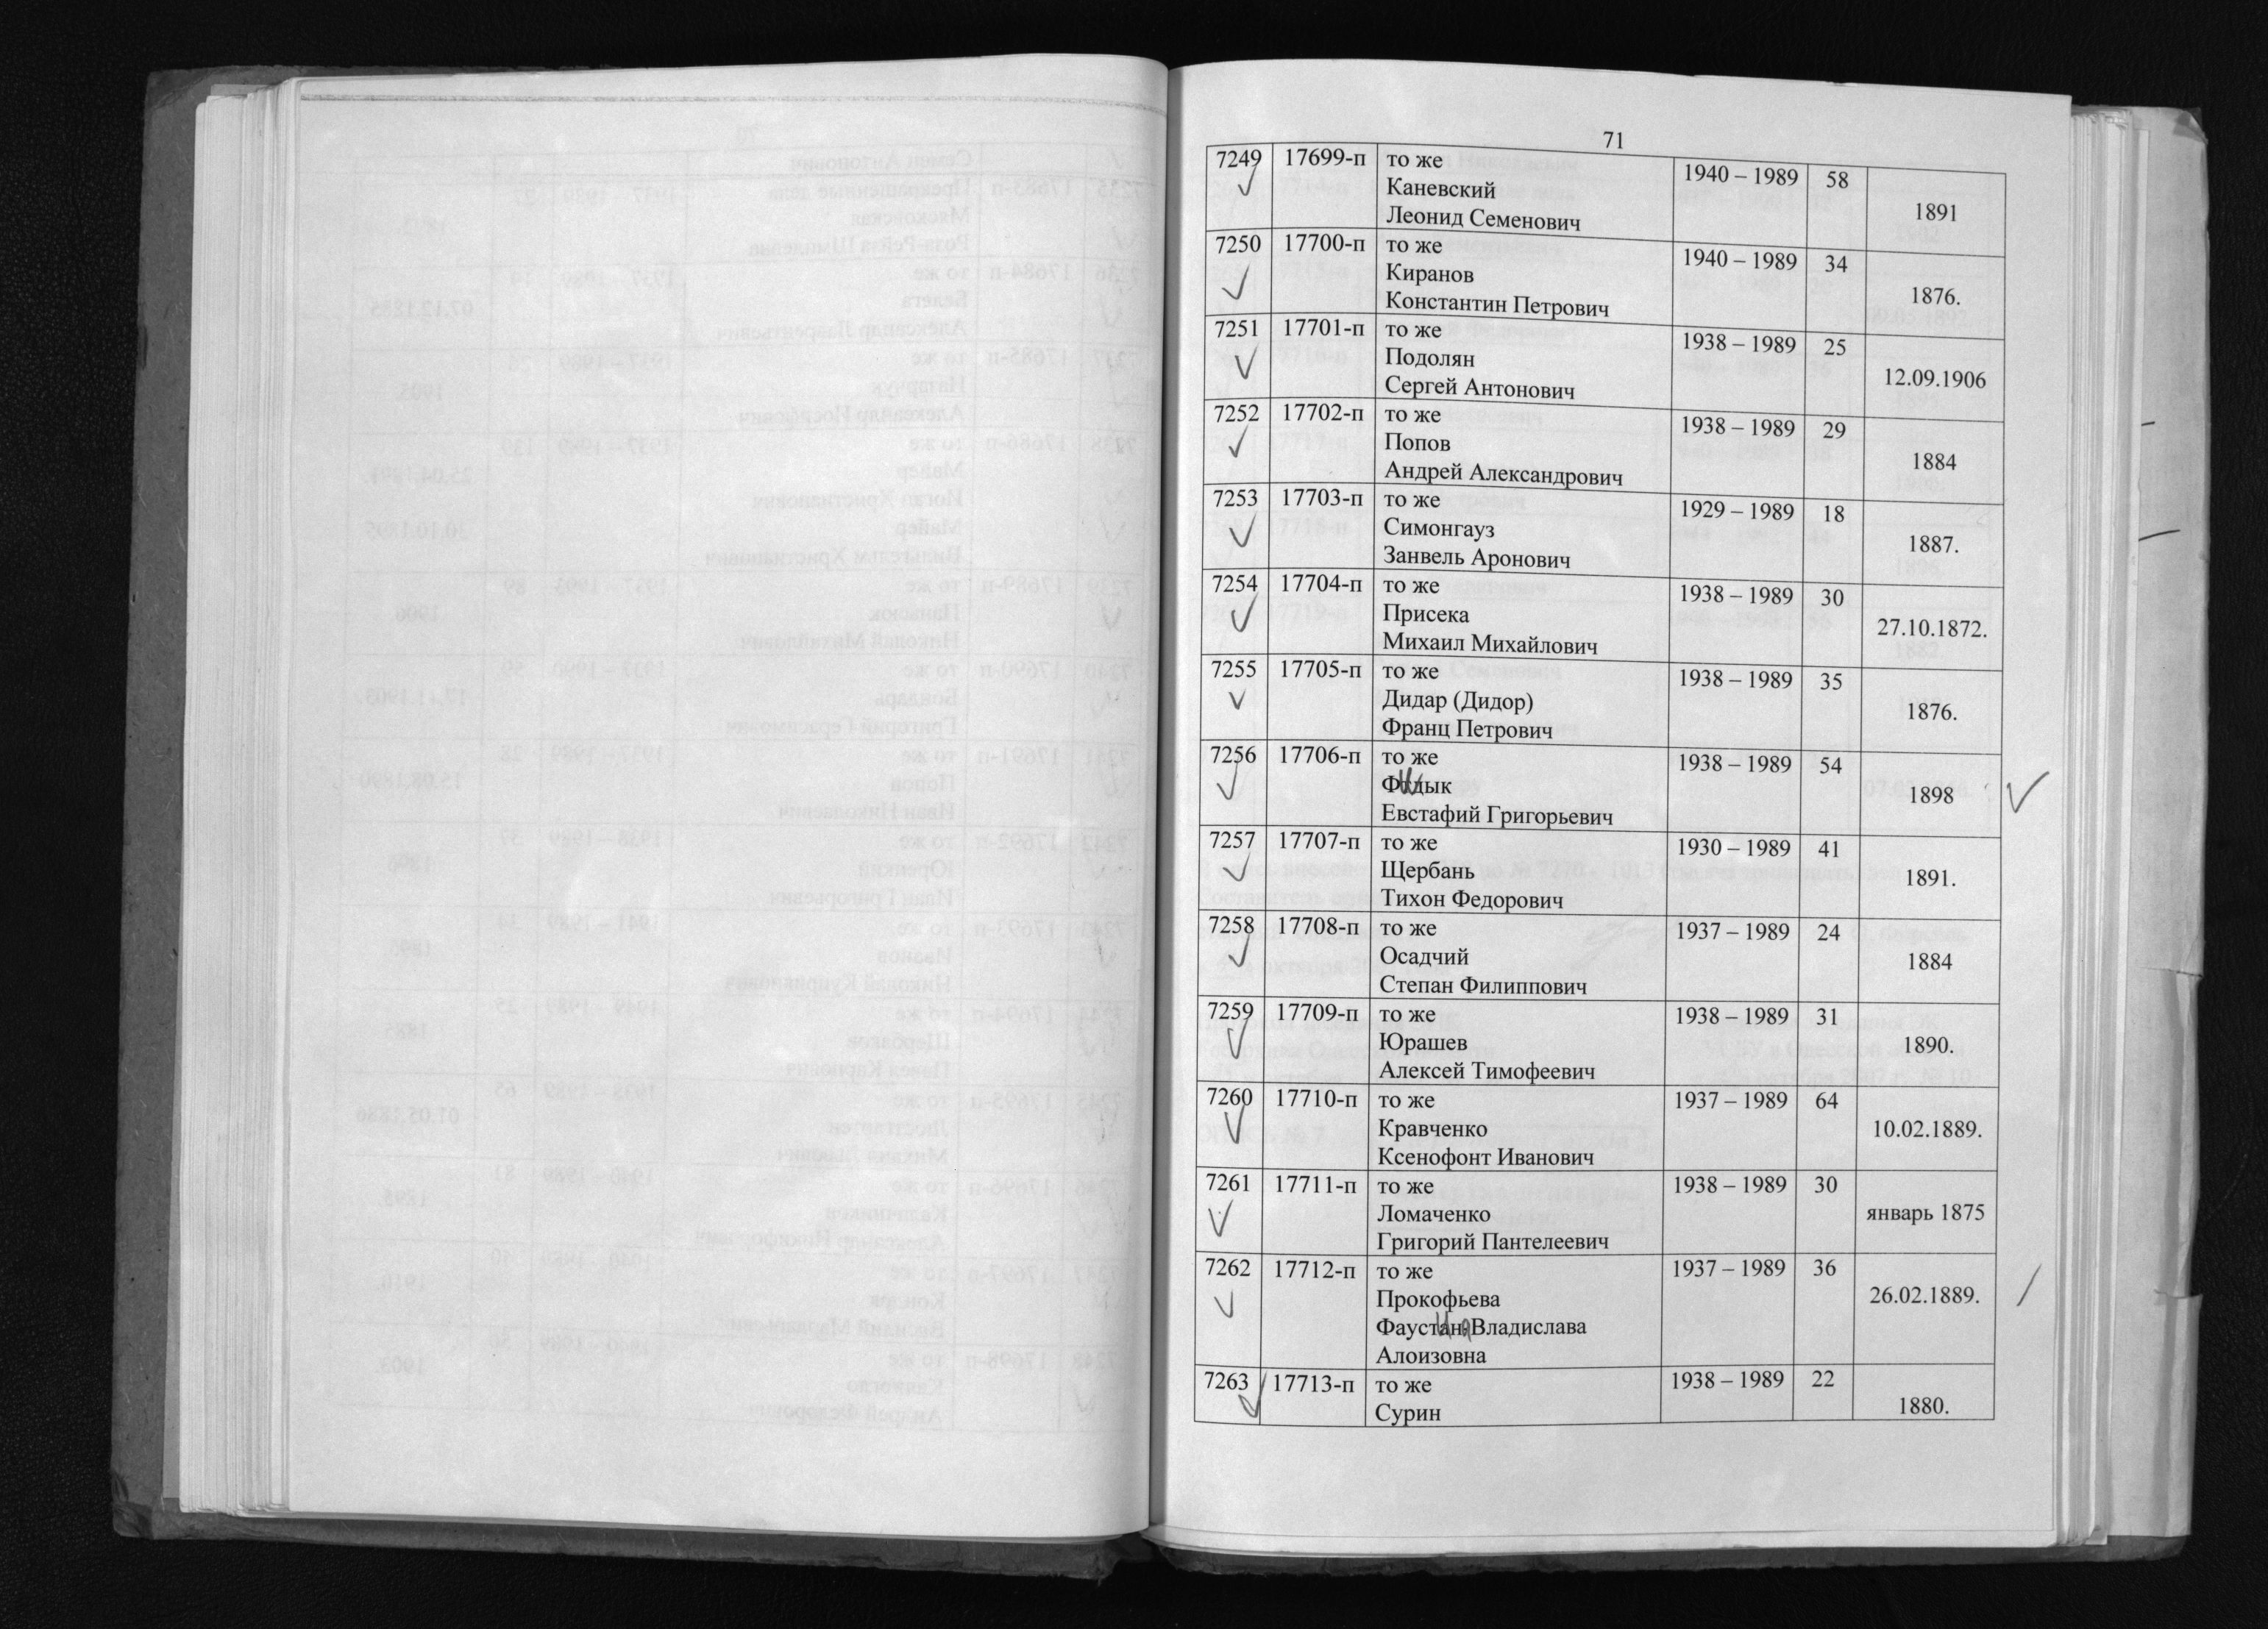 71
7249 17699-п то же 1940 – 1989 58
Каневский
Леонид Семенович 1891
7250 17700-п то же 1940 – 1989 34
Киранов
Константин Петрович 1876.
7251 17701-п то же 1938 – 1989 25
Подолян
Сергей Антонович 12.09.1906
7252 17702-п то же 1938 – 1989 29
Попов
Андрей Александрович 1884
7253 17703-п то же 1929 – 1989 18
Симонгауз
Занвель Аронович 1887.
7254 17704-п то же 1938 – 1989 30
Присека
Михаил Михайлович 27.10.1872.
7255 17705-п то же 1938 – 1989 35
Дидар (Дидор)
Франц Петрович 1876.
7256 17706-п то же 1938 – 1989 54
Евстафий Григорьевич 1898
7257 17707-п то же 1930 – 1989 41
Щербань
Тихон Федорович 1891.
7258 17708-п то же 1937 – 1989 24
Осадчий
Степан Филиппович 1884
7259 17709-п то же 1938 – 1989 31
Юрашев
Алексей Тимофеевич 1890.
7260 17710-п то же 1937 – 1989 64
Кравченко
Ксенофонт Иванович 10.02.1889.
7261 17711-п то же 1938 – 1989 30
Ломаченко
Григорий Пантелеевич январь 1875
7262 17712-п то же 1937 – 1989 36
Прокофьева 26.02.1889.
Владислава
Алоизовна
7263 17713-п то же 1938 – 1989 22
Сурин 1880.